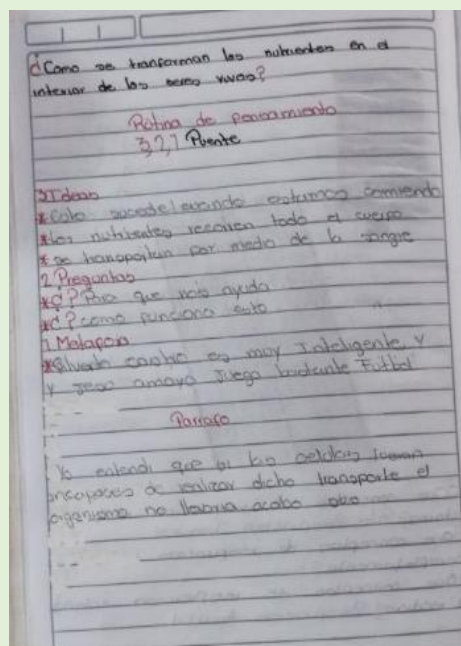 ¿Como se tranforman los nutrientes en el
interior de los seres vivos?
Rutina de pensamiento
3,2,1 Puente
3 Ideas
* Esto sucede cuando estamos comiendo
* los nutrientes recorren todo el cuerpo
* se transportan por medio de la sangre
2 Preguntas
* ¿? Para que nos ayuda
* ¿? como funciona esto
1 Metafora
* castro es muy Inteligente y
y amaya Juega bastante Futbol
Parrafo
Yo entendi que si las celulas fueran
incapaces de realizar dicho transporte el
organismo no llevaria acabo